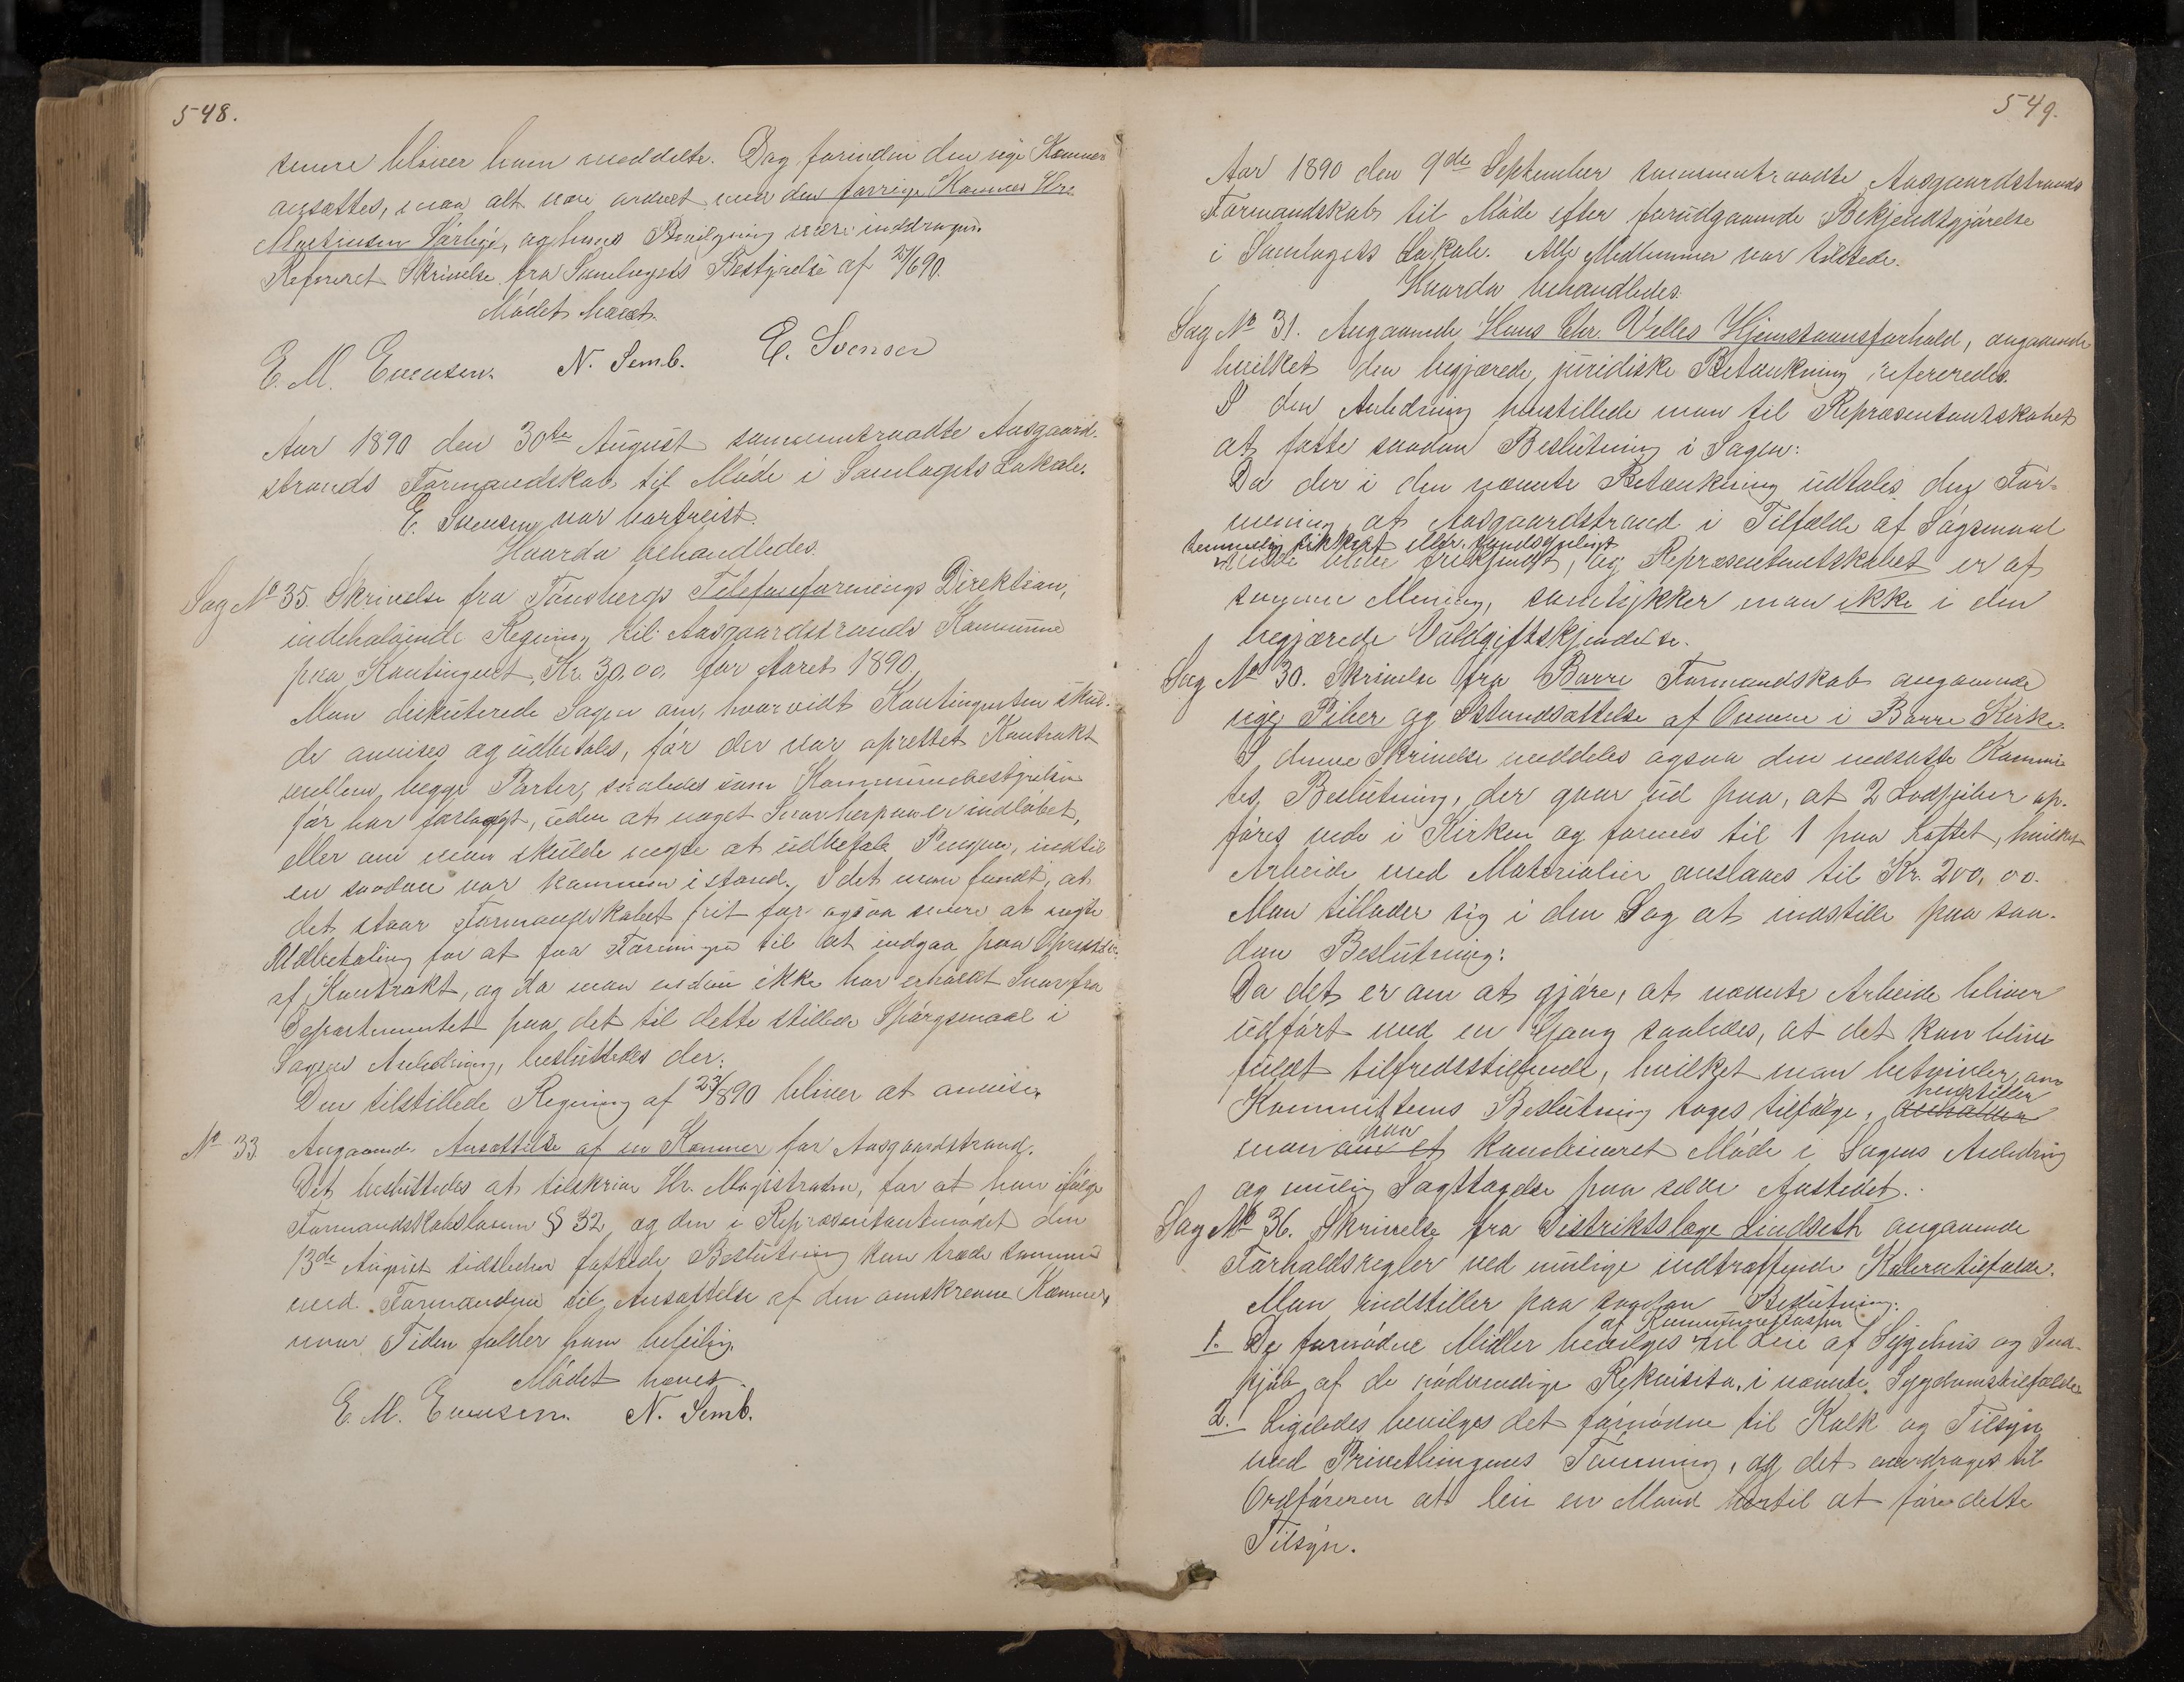 548.
senere bliver ham meddelte. Dog forinden den nye Kæmner
ansættes, maa alt være ordnet med den forrige Kæmner Hr.
Martinsen Sørbye, og hans Bevilgning være inddragen.
Refereret Skrivelse fra Samlagets Bestyrelse af 21/6 90.
Mødet hævet.
E. M. Evensen. N. Semb. E. Svensen
Aar 1890 den 30te August sammentraadte Aasgaard-
strands Formandskab til Møde i Samlagets Lokale.
E. Svensen var bortreist.
Hvorda behandledes.
Sag No 35. Skrivelse fra Tønsbergs Telefonforenings Direktion,
indeholdende Regning til Aasgaardstrands Kommune
paa Kontingent, Kr. 30,00, for Aaret 1890.
Man diskuterede Sagen om, hvorvidt Kontingenten skul-
de anvises og udbetales, før der var oprettet Kontrakt
mellem begge Parter, saaledes som Kommunebestyrelsen
før har forlangt, uden at noget Svar herpaa er indløbet,
eller om man skulde negte at udbetale Pengene, indtil
en saadan var kommen i stand. I det man fandt, at
det staar Formandskabet frit for ogsaa senere at negte
Udbetaling for at faa Foreningen til at indgaa paa Oprettelse
af Kontrakt, og da man endnu ikke har erholdt Svar fra
Departementet paa det til dette stillede Spørgsmaal i
Sagens Anledning, besluttedes der:
Den tilstillede Regning af 23/8 90 bliver at anvise.
No 33. Angaaende Ansættelse af en Kæmner for Aasgaardstrand.
Det besluttedes at tilskrive Hr. Magistraten, for at han ifølge
Formandskabsloven § 32 og den i Repræsentantmødet den
13de August sidstleden fattede Beslutning kan træde sammen
med Formanden til Ansættelse af den omskrevne Kæmner,
naar Tiden falder ham beleilig.
Mødet hævet.
E. M. Evensen. N. Semb.
549.
Aar 1890 den 9de September sammentraadte Aasgaardstrands
Formandskab til Møde efter forudgaaende Bekjendtgjørelse
i Samlagets Lokale. Alle Medlemmer var tilstede.
Hvorda behandledes.
Sag No 31. Angaaende Hans Chr. Velles Hjemstavnsforhold, angaaende
hvilket den begjærede juridiske Betænkning refereredes.
I den Anledning henstillede man til Repræsentantskabet
at fatte saadan Beslutning i Sagen:
Da der i den nævnte Betænkning udtales den For-
mening, at Aasgaardstrand i Tilfælde af Søgsmaal
temmelig sikkert eller sandsynligt
vilde blive frikjendt, og Repræsentantskabet er af
samme Mening, samtykker man ikke i den
begjærede Voldgiftskjendelse.
Sag No 30. Skrivelse fra Borre Formandskab angaaende
nye Piber og Istandsættelse af Ovnene i Borre Kirke.
I denne Skrivelse meddeles ogsaa den nedsatte Kommi-
tes Beslutning, der gaar ud paa, at 2 Lodpiber op-
føres nede i Kirken og forenes til 1 paa Loftet, hvilket
Arbeide med Materialier anslaaes til Kr. 200,00.
Man tillader sig i den Sag at indstille paa saa-
dan Beslutning:
Da det er om at gjøre, at nævnte Arbeide bliver
udført med en Gang saaledes, at det kan blive
fuldt tilfredsstillende, hvilket man betvivler, om
Kommitteens Beslutning tages tilfølge, henstiller
man paa kombineret Møde i Sagens Anledning
og mulig Iagttagelse paa selve Aastedet.
Sag No 36. Skrivelse fra Distriktslæge Lindseth angaaende
Forholdsregler ved mulige indtræffende Koleratilfælde.
Man indstiller paa saadan Beslutning:
af Kommunekassen
1. De fornødne Midler bevilges til Leie af Sygehus og Ind-
kjøb af de nødvendige Rekvisita i nævnte Sygdomstilfælde.
2. Ligeledes bevilges det fornødne til Kalk og Tilsyn
med Privetbingernes Tømning, og det overdrages til
Ordføreren at leie en Mand hertil at føre dette
Tilsyn.